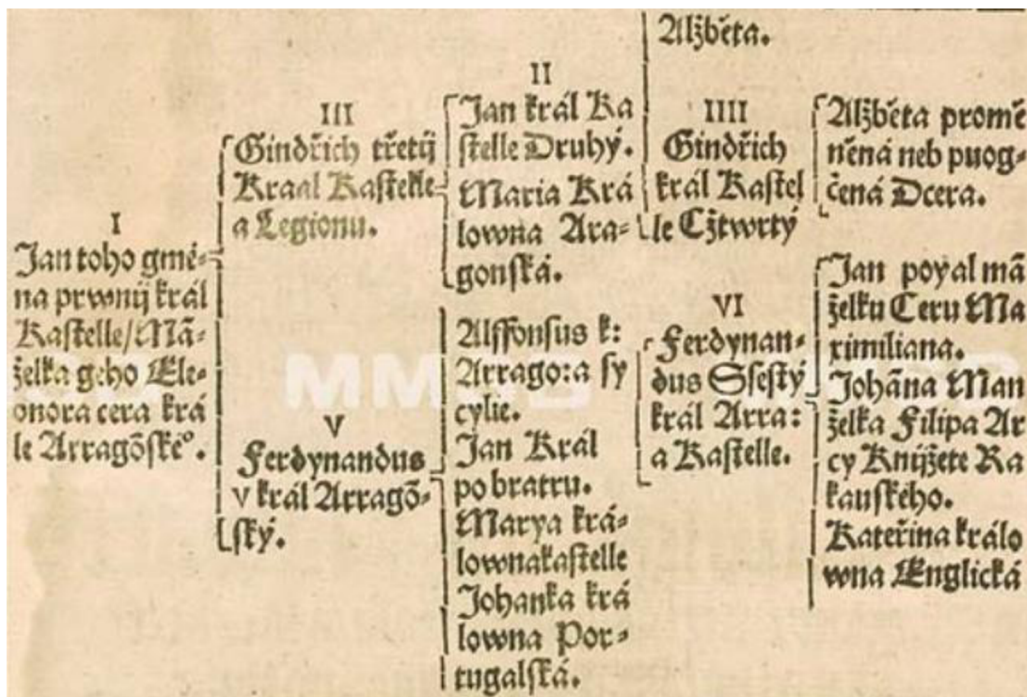 I
Jan toho gmé-
na prwnij král
Kastelle/Mã-
želka geho Ele-
onora cera krá
le Arragõskéº.
III
Gindřich třetij
Kraal Kastelle
a Legionu.
V
Ferdynandus
v král Arragõ-
ský.
II
Jan král Ka
stelle Druhý.
Maria Krá
lowna Ara-
gonská.
Alffonsus k:
Arrago: a sy
cylie.
Jan Král
po bratru.
Marya krá-
lownakastelle
Johanka krá
lowna Por-
tugalská.
Alžběta.
IIII
Gindřich
král Kastel
le Cžtwrtý
VI
Ferdynan-
dus Ssestý
král Arra:
a Kastelle.
Alžběta promě
něná neb puog-
čená Dcera.
Jan poyal mã
želku Ceru Ma
ximiliana.
Johãna Man
želka Filipa Ar
cy Knijžete Ra
kauského.
Kateřina králo
wna Englická